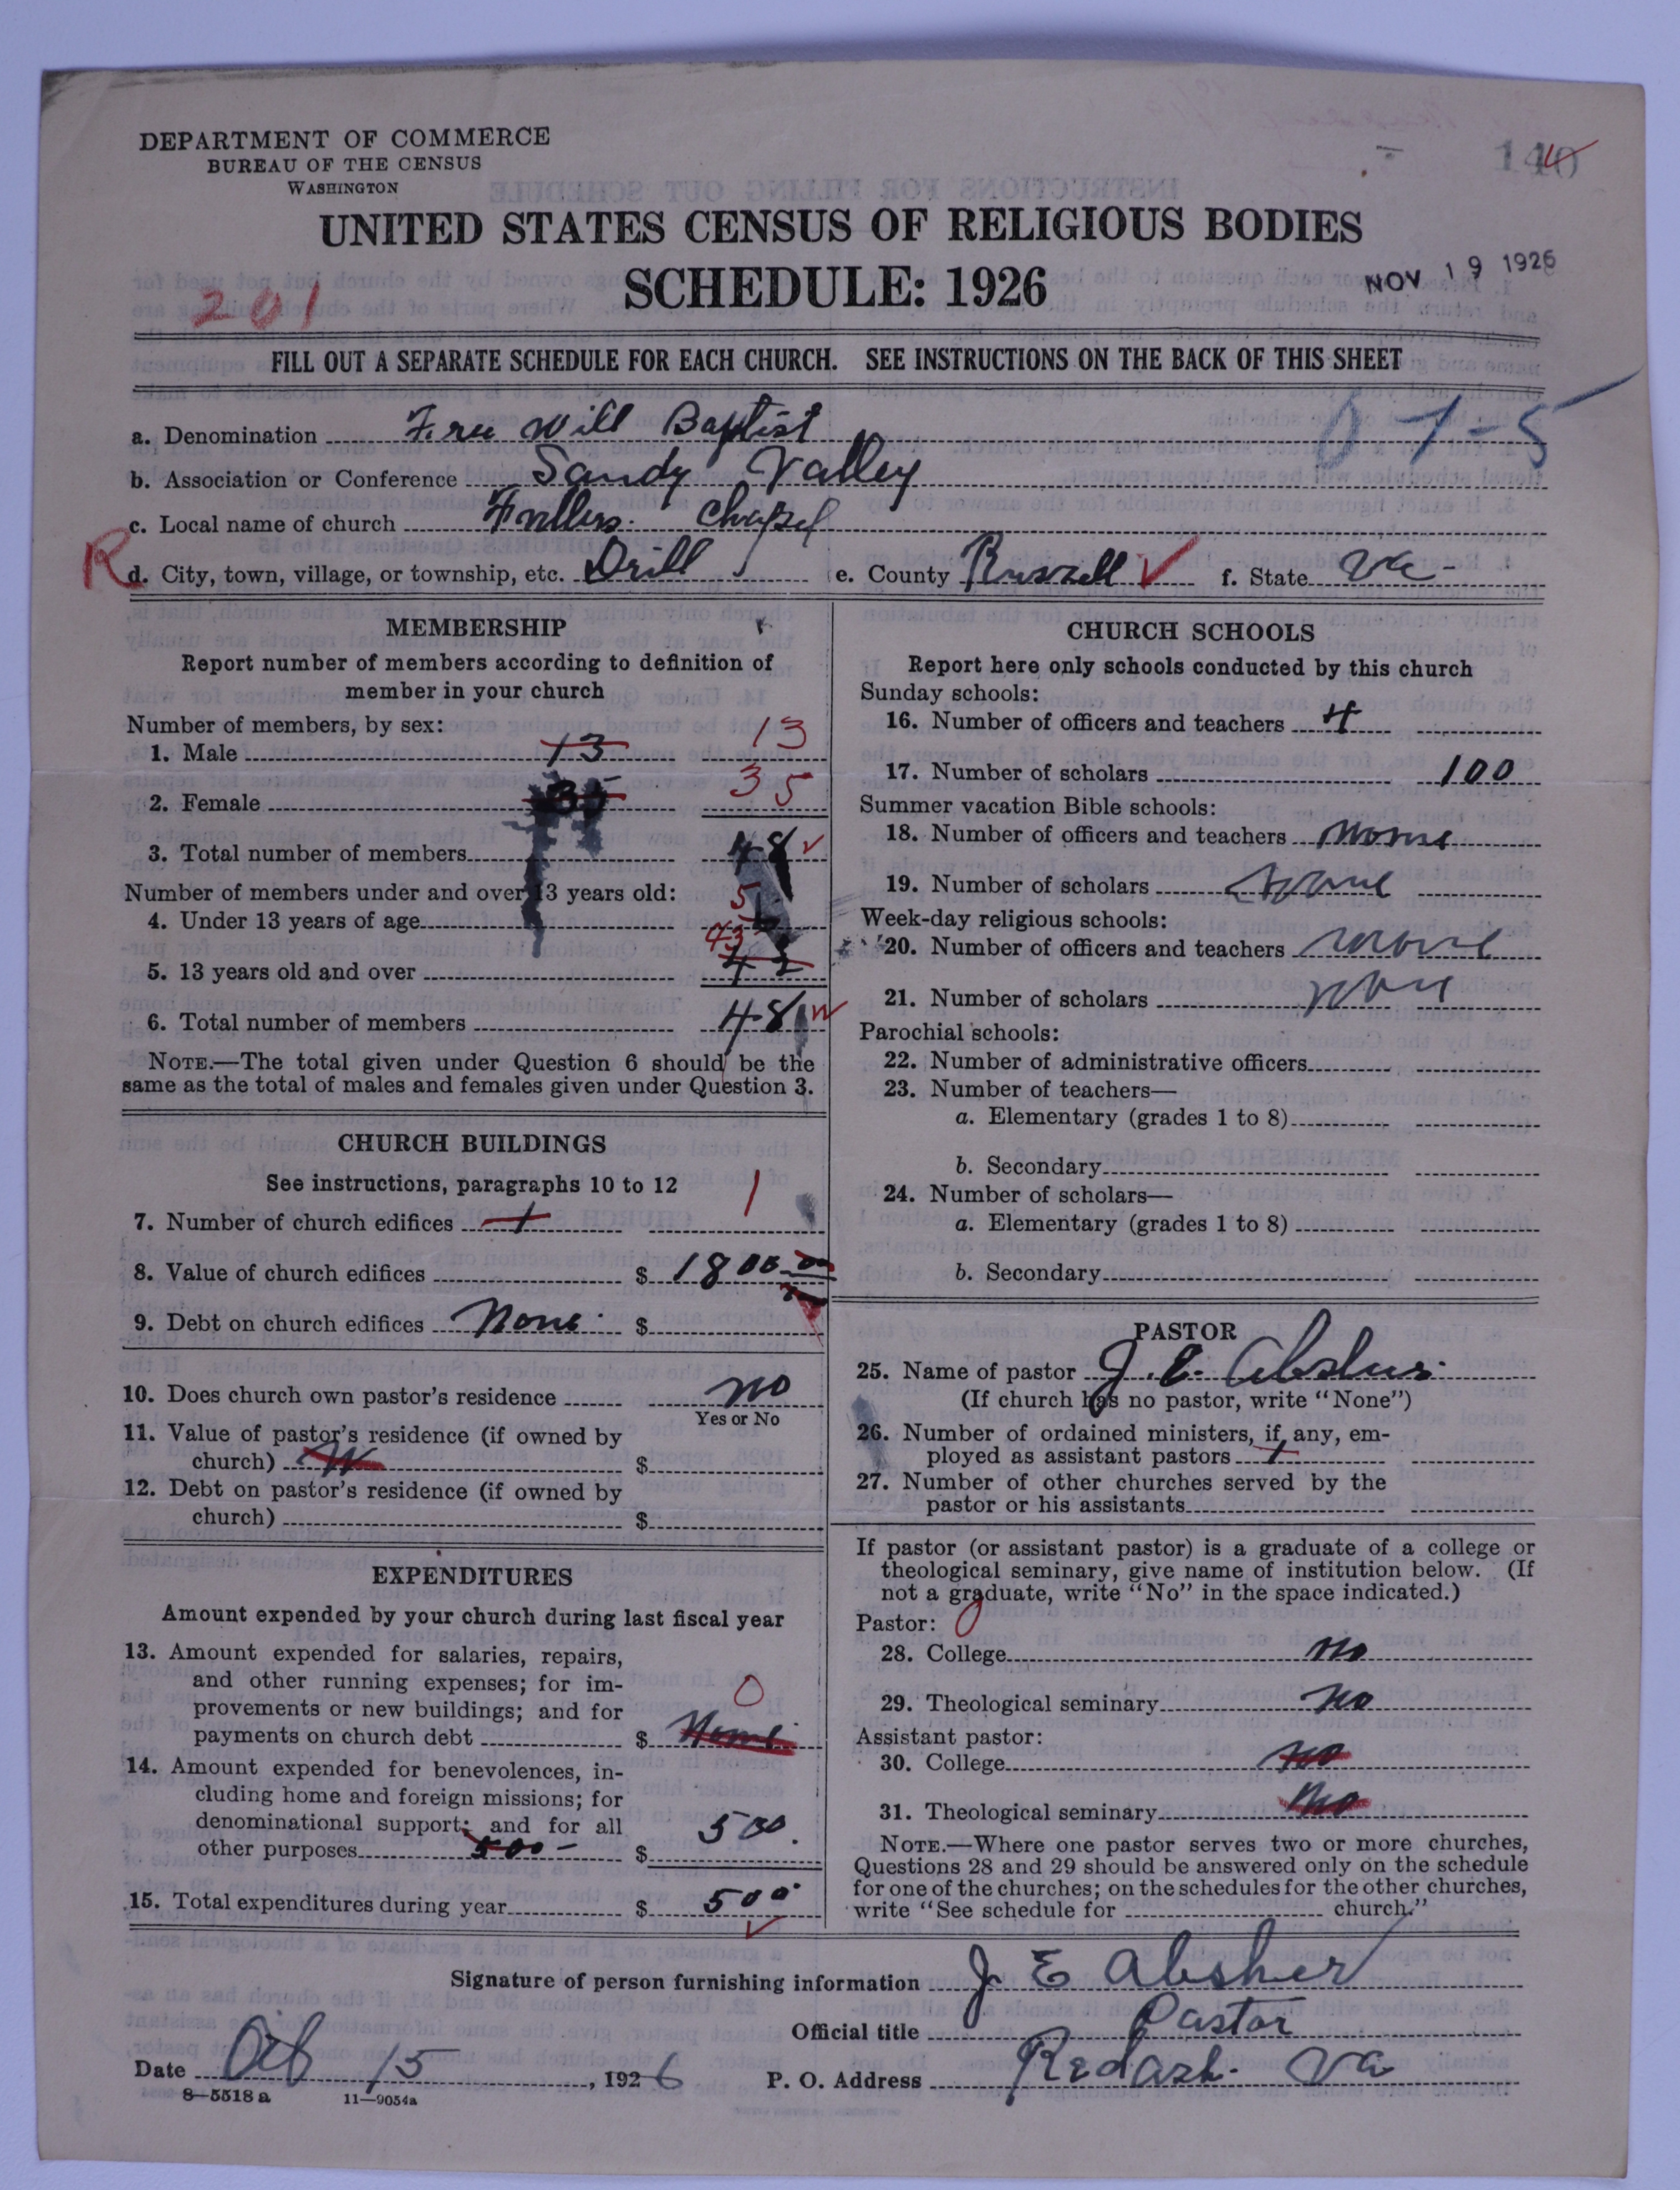 140
DEPARTMENT OF COMMERCE
BUREAU OF THE CENSUS
WASHINGTON
UNITED STATES CENSUS OF RELIGIOUS BODIES
SCHEDULE: 1926
NOV 19 1926
201
FILL OUT A SEPARATE SCHEDULE FOR EACH CHURCH. SEE INSTRUCTIONS ON THE BACK OF THIS SHEET
a. Denomination Free Will Baptist
b. Association or Conference Sandy Valley
c. Local name of church Chapel
R d. City, town, village, or township, etc. Drill e. County Russell f. State Va
MEMBERSHIP
Report number of members according to definition of
member in your church
Number of members, by sex:
1. Male 13 13
2. Female 35 35
3. Total number of members 48
Number of members under and over 13 years old:
4. Under 13 years of age 5
5. 13 years old and over 43 42
6. Total number of members 48
NOTE.—The total given under Question 6 should be the
same as the total of males and females given under Question 3.
CHURCH BUILDINGS
See instructions, paragraphs 10 to 12
7. Number of church edifices 1 1
8. Value of church edifices $ 1800.00
9. Debt on church edifices None $
10. Does church own pastor's residence no
Yes or No
11. Value of pastor's residence (if owned by
church) $
12. Debt on pastor's residence (if owned by
church) $
EXPENDITURES
Amount expended by your church during last fiscal year
13. Amount expended for salaries, repairs,
and other running expenses; for im-
provements or new buildings; and for 0
payments on church debt $ None
14. Amount expended for benevolences, in-
cluding home and foreign missions; for
denominational support; and for all
other purposes 500 $ 500
15. Total expenditures during year $ 500
CHURCH SCHOOLS
Report here only schools conducted by this church
Sunday schools:
16. Number of officers and teachers 4
17. Number of scholars 100
Summer vacation Bible schools:
18. Number of officers and teachers none
19. Number of scholars none
Week-day religious schools:
20. Number of officers and teachers none
21. Number of scholars none
Parochial schools:
22. Number of administrative officers
23. Number of teachers—
a. Elementary (grades 1 to 8)
b. Secondary
24. Number of scholars—
a. Elementary (grades 1 to 8)
b. Secondary
PASTOR
25. Name of pastor J. E. Absher
(If church has no pastor, write "None")
26. Number of ordained ministers, if any, em-
ployed as assistant pastors 1
27. Number of other churches served by the
pastor or his assistants
If pastor (or assistant pastor) is a graduate of a college or
theological seminary, give name of institution below. (If
not a graduate, write "No" in the space indicated.)
Pastor: 0
28. College no
29. Theological seminary no
Assistant pastor:
30. College no
31. Theological seminary no
NOTE.—Where one pastor serves two or more churches,
Questions 28 and 29 should be answered only on the schedule
for one of the churches; on the schedules for the other churches,
write "See schedule for church."
Signature of person furnishing information J. E Absher
Official title Pastor
Date Oct 15, 1926 P. O. Address Redash. Va
8—5518 a 11—9054a